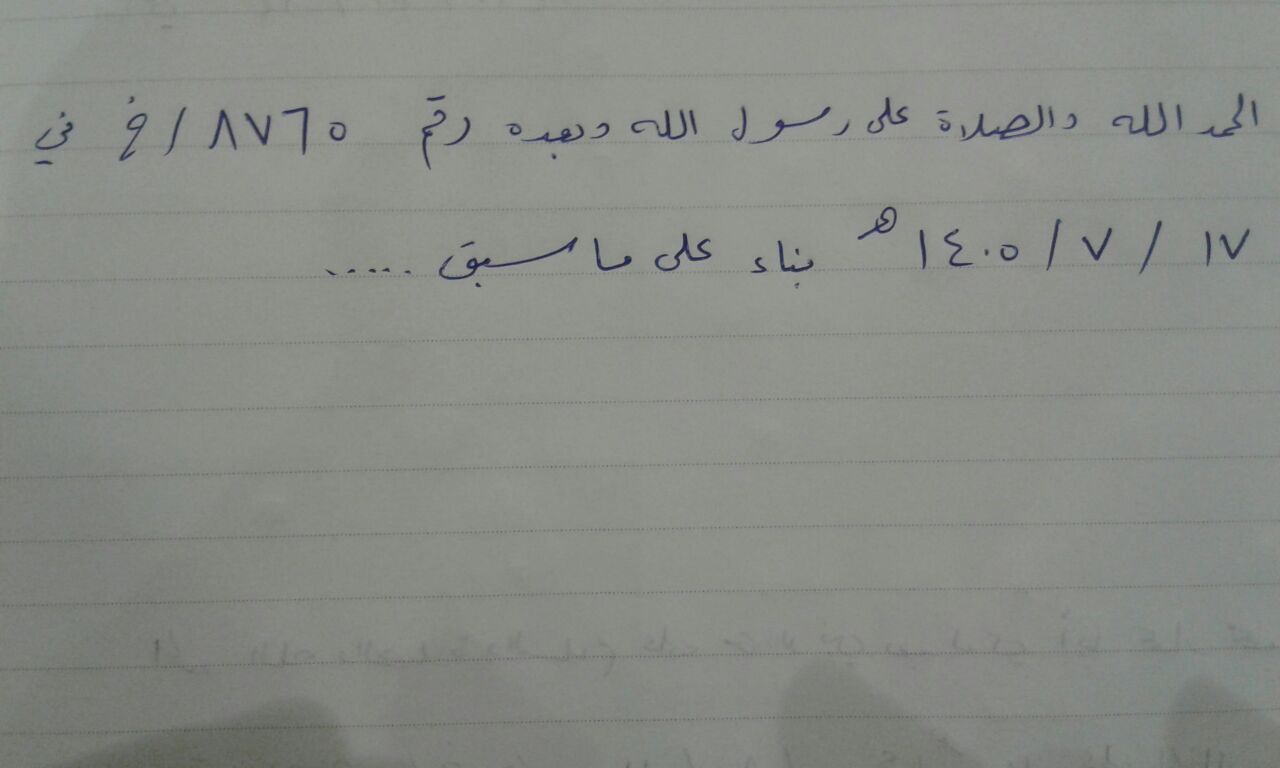 الحمد الله والصلاة على رسول الله وبعده رقم ٨٧٦٥ / خ في
١٧ / ٧ / ١٤٠٥ هـ بناء على ما سبق .....